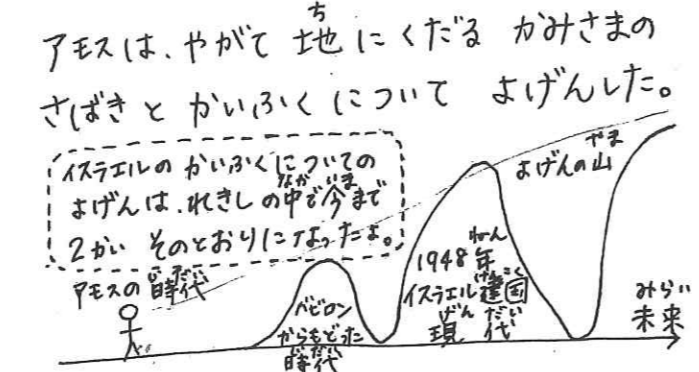 アモスは、やがて 地にくだる かみさまの
さばきと かいふくについて よげんした。
イスラエルの かいふくについての
よげんは、れきしの中で今まで
2かい そのとおりになったよ。
アモスの時代
バビロン
からもどった
時代
1948年
イスラエル建国
現代
よげんの山
未来